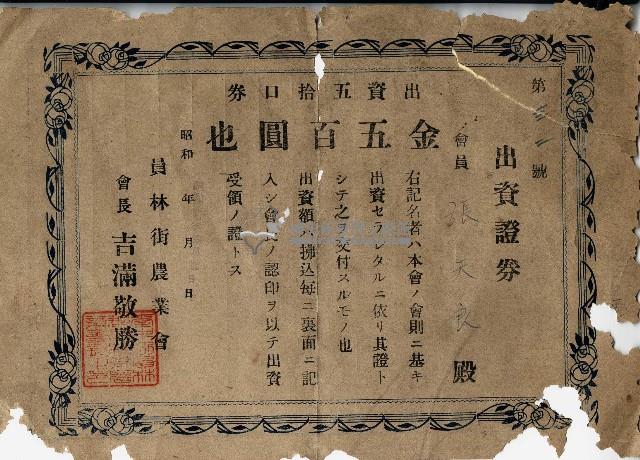 第三二號
出資證券
會員 張天良 殿
出資五拾口券
金五百圓也
右記名者ハ本會ノ會則ニ基キ
出資セラレタルニ依リ其證ト
シテ之ヲ交付スルモノ也
出資額ノ拂込每ニ裏面ニ記
入シ會長ノ認印ヲ以テ出資
受領ノ證トス
昭和 年 月 日
員林街農業會
會長 吉滿敬勝